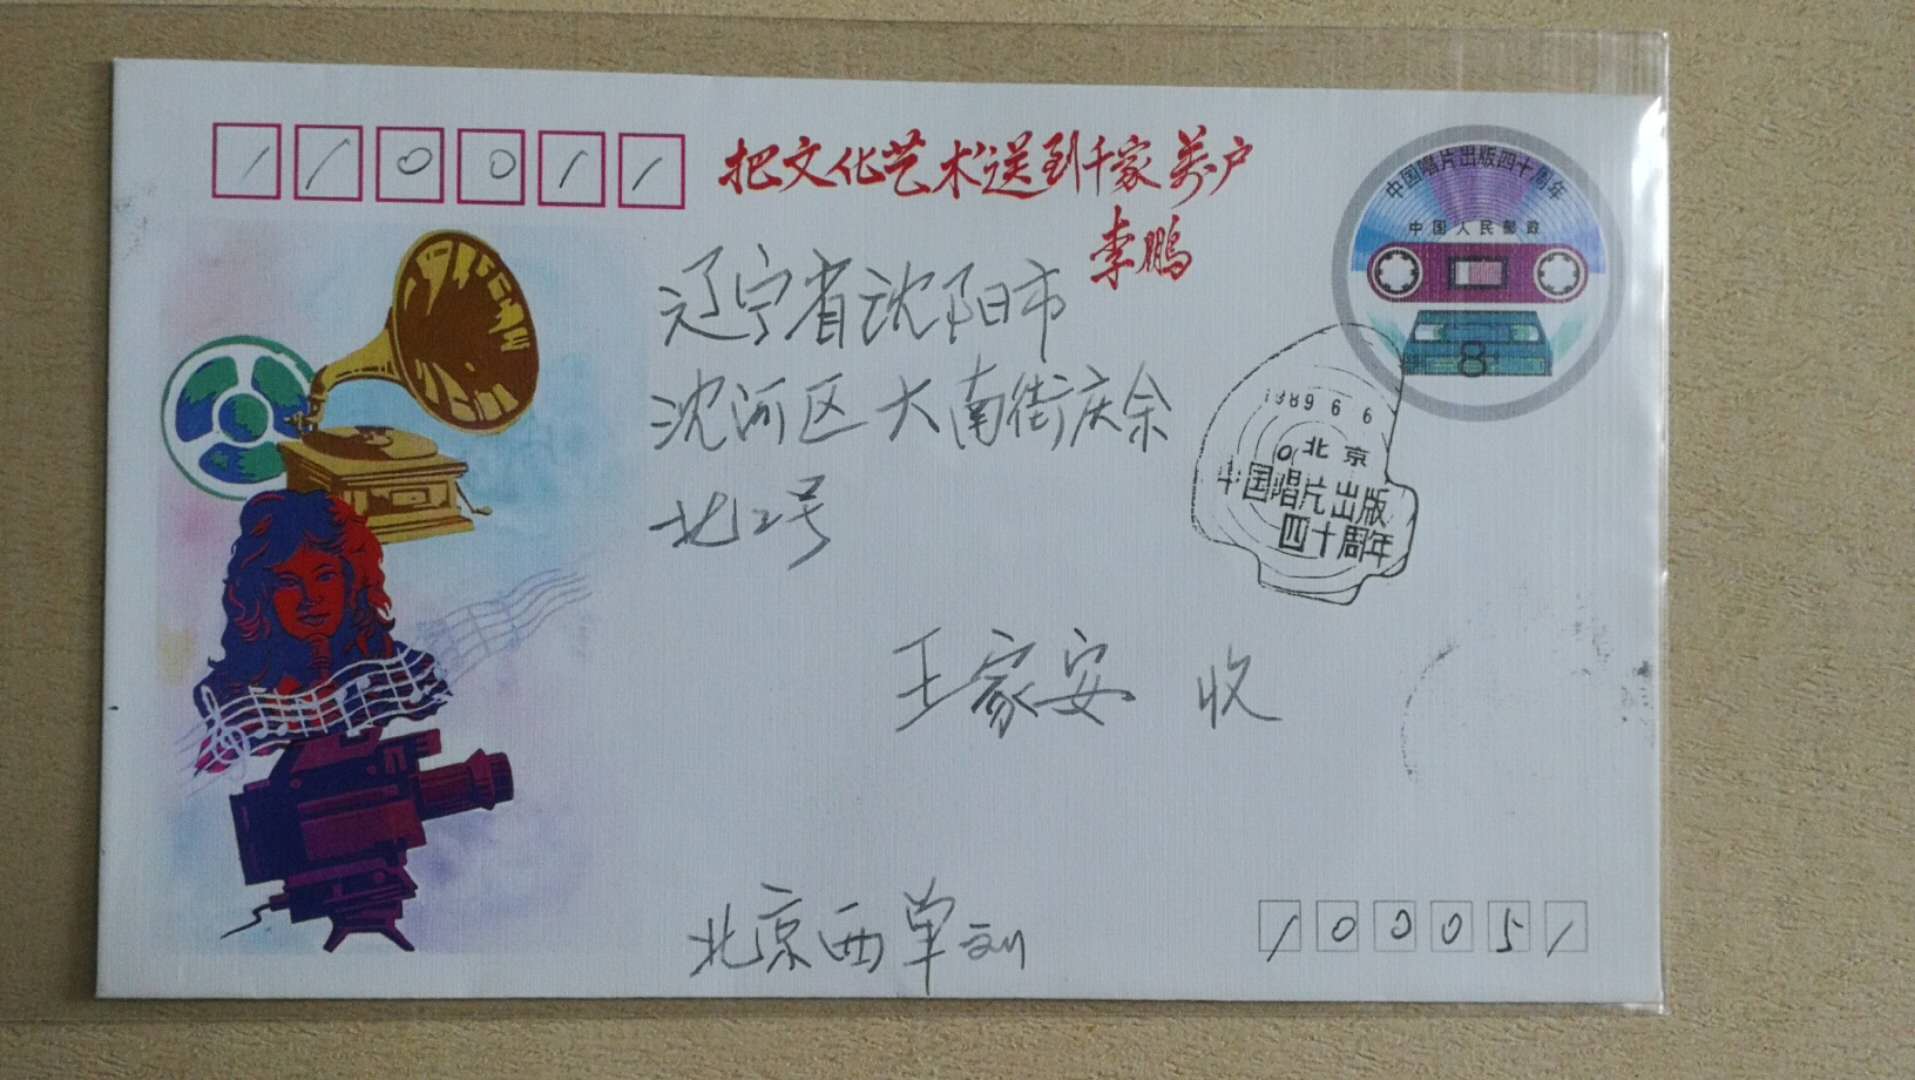 110011
把文化艺术送到千家万户
李鹏
中国唱片出版四十周年
中国人民邮政
8
辽宁省沈阳市
沈河区大南街庆余
北12号
1989 6 6
北京
中国唱片出版
四十周年
王家安 收
北京西单 刘
100051